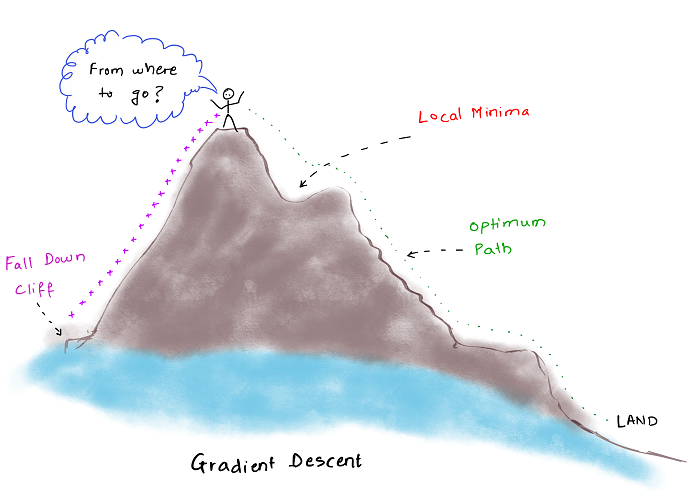 From where
to go?
Local Minima
Optimum
Path
Fall Down
Cliff
LAND
Gradient Descent